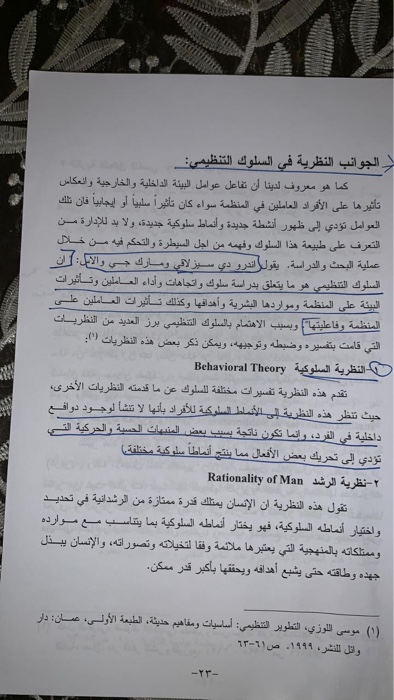 الجوانب النظرية في السلوك التنظيمي:
كما هو معروف لدينا أن تفاعل عوامل البيئة الداخلية والخارجية وانعكاس
تأثيرها على الأفراد العاملين في المنظمة سواء كان تأثيراً سلبياً أو إيجابياً فان تلك
العوامل تؤدي إلى ظهور أنشطة جديدة وأنماط سلوكية جديدة، ولا بد للإدارة من
التعرف على طبيعة هذا السلوك وفهمه من اجل السيطرة والتحكم فيه من خلال
عملية البحث والدراسة. يقول اندرو دي سيزلاقي ومارك جي والاس: "إن
السلوك التنظيمي هو ما يتعلق بدراسة سلوك واتجاهات وأداء العاملين وتأثيرات
البيئة على المنظمة ومواردها البشرية وأهدافها وكذلك تأثيرات العاملين على
المنظمة وفاعليتها" وبسبب الاهتمام بالسلوك التنظيمي برز العديد من النظريات
التي قامت بتفسيره وضبطه وتوجيهه، ويمكن ذكر بعض هذه النظريات (١):
١-النظرية السلوكية Behavioral Theory
تقدم هذه النظرية تفسيرات مختلفة للسلوك عن ما قدمته النظريات الأخرى،
حيث تنظر هذه النظرية إلى الأنماط السلوكية للأفراد بأنها لا تنشأ لوجود دوافع
داخلية في الفرد، وإنما تكون ناتجة بسبب بعض المنبهات الحسية والحركية التي
تؤدي إلى تحريك بعض الأفعال مما ينتج أنماطاً سلوكية مختلفة.
٢-نظرية الرشد Rationality of Man
تقول هذه النظرية ان الإنسان يمتلك قدرة ممتازة من الرشدانية في تحديد
واختيار أنماطه السلوكية، فهو يختار أنماطه السلوكية بما يتناسب مع موارده
وممتلكاته بالمنهجية التي يعتبرها ملائمة وفقا لتخيلاته وتصوراته، والإنسان يبذل
جهده وطاقته حتى يشبع أهدافه ويحققها بأكبر قدر ممكن.
(١) موسى اللوزي، التطوير التنظيمي: أساسيات ومفاهيم حديثة، الطبعة الأولى، عمان: دار
وائل للنشر، ١٩٩٩. ص٦١-٦٣
-٢٣-